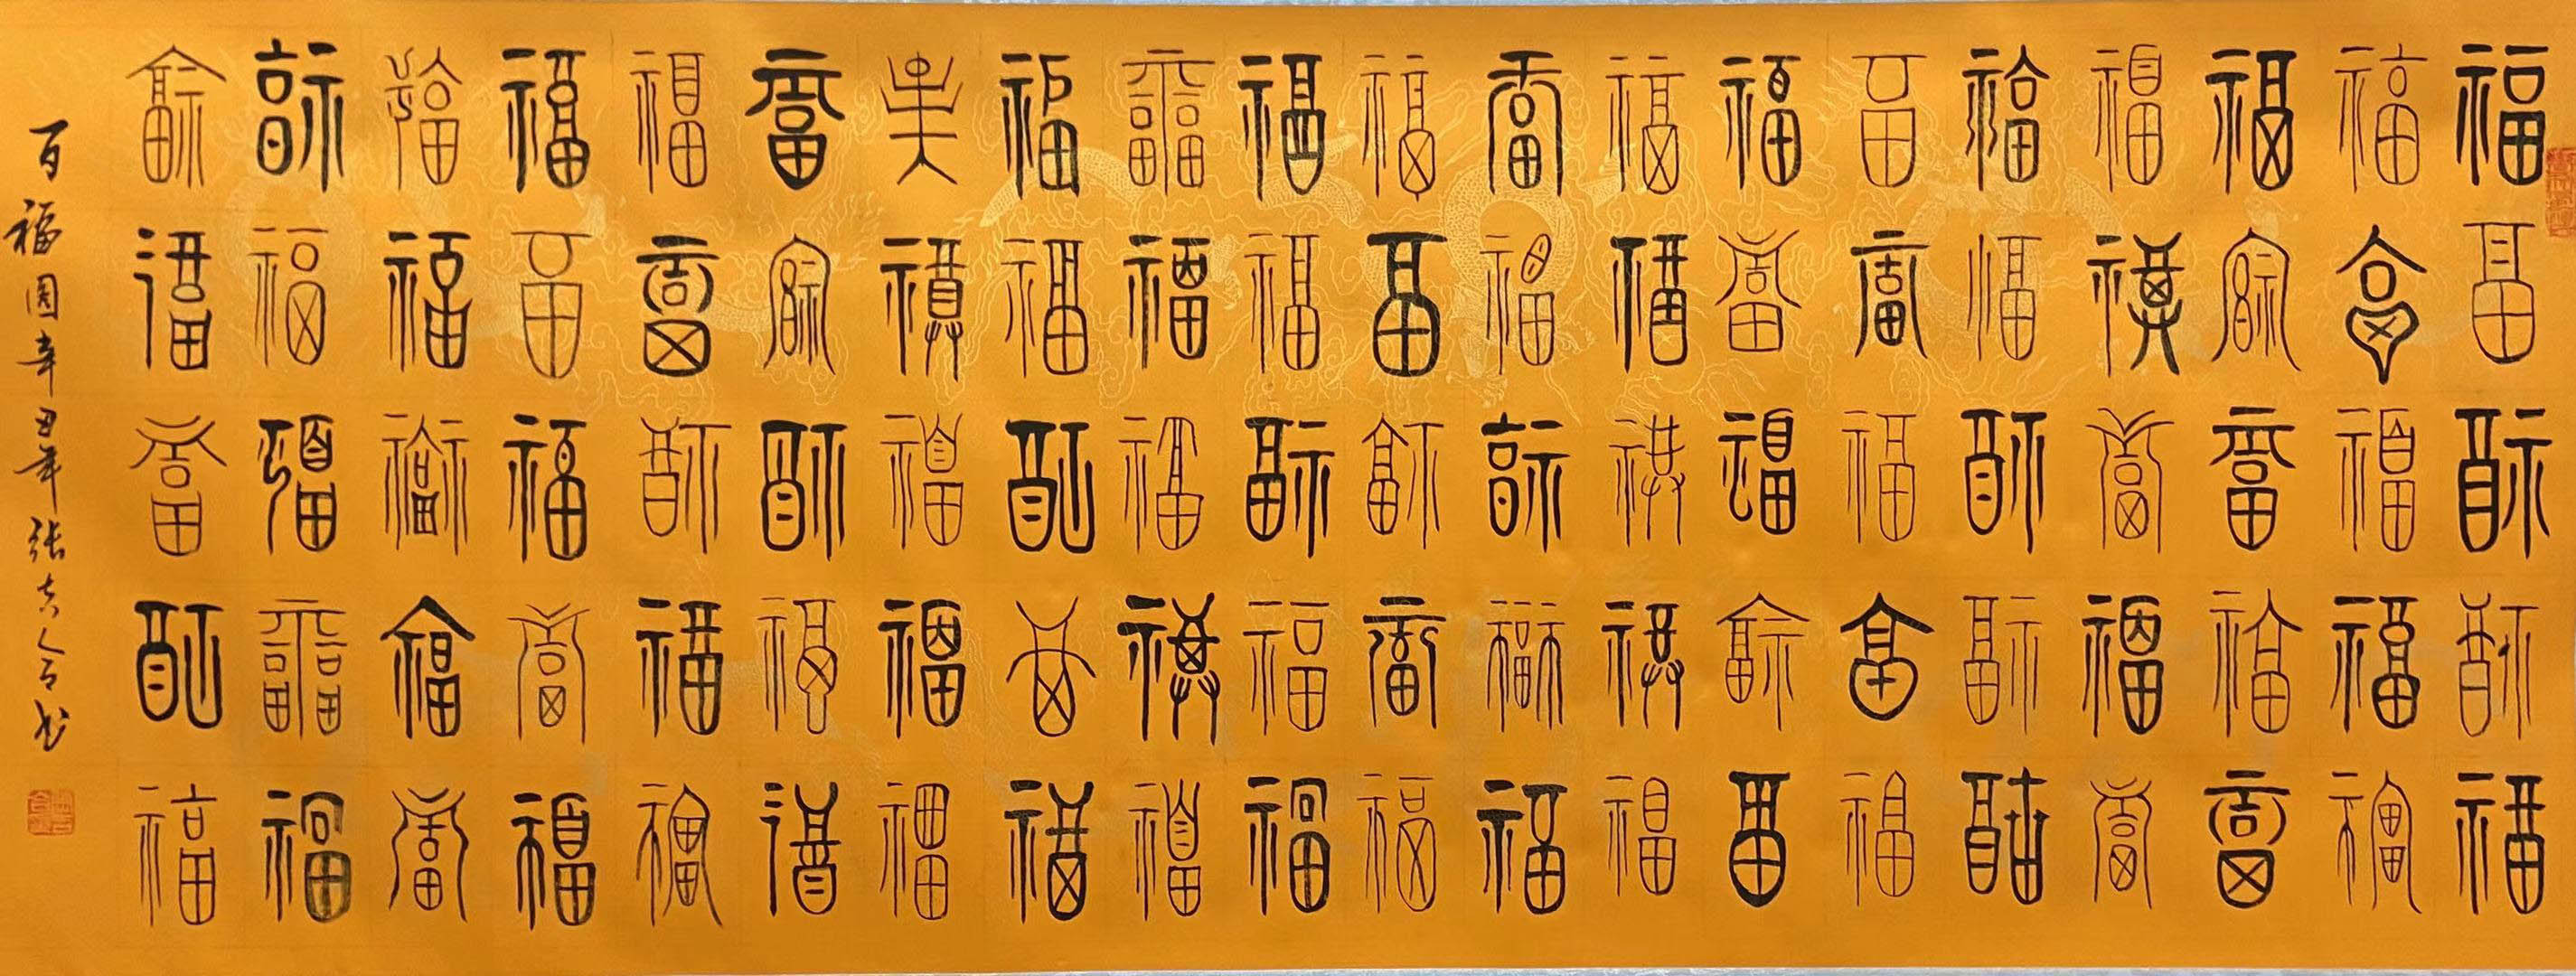 福福福福福福福福福福福福福福福福福福福福
福福福福福福福福福福福福福福福福福福福福
福福福福福福福福福福福福福福福福福福福福
福福福福福福福福福福福福福福福福福福福福
福福福福福福福福福福福福福福福福福福福福
百福图辛丑年张书